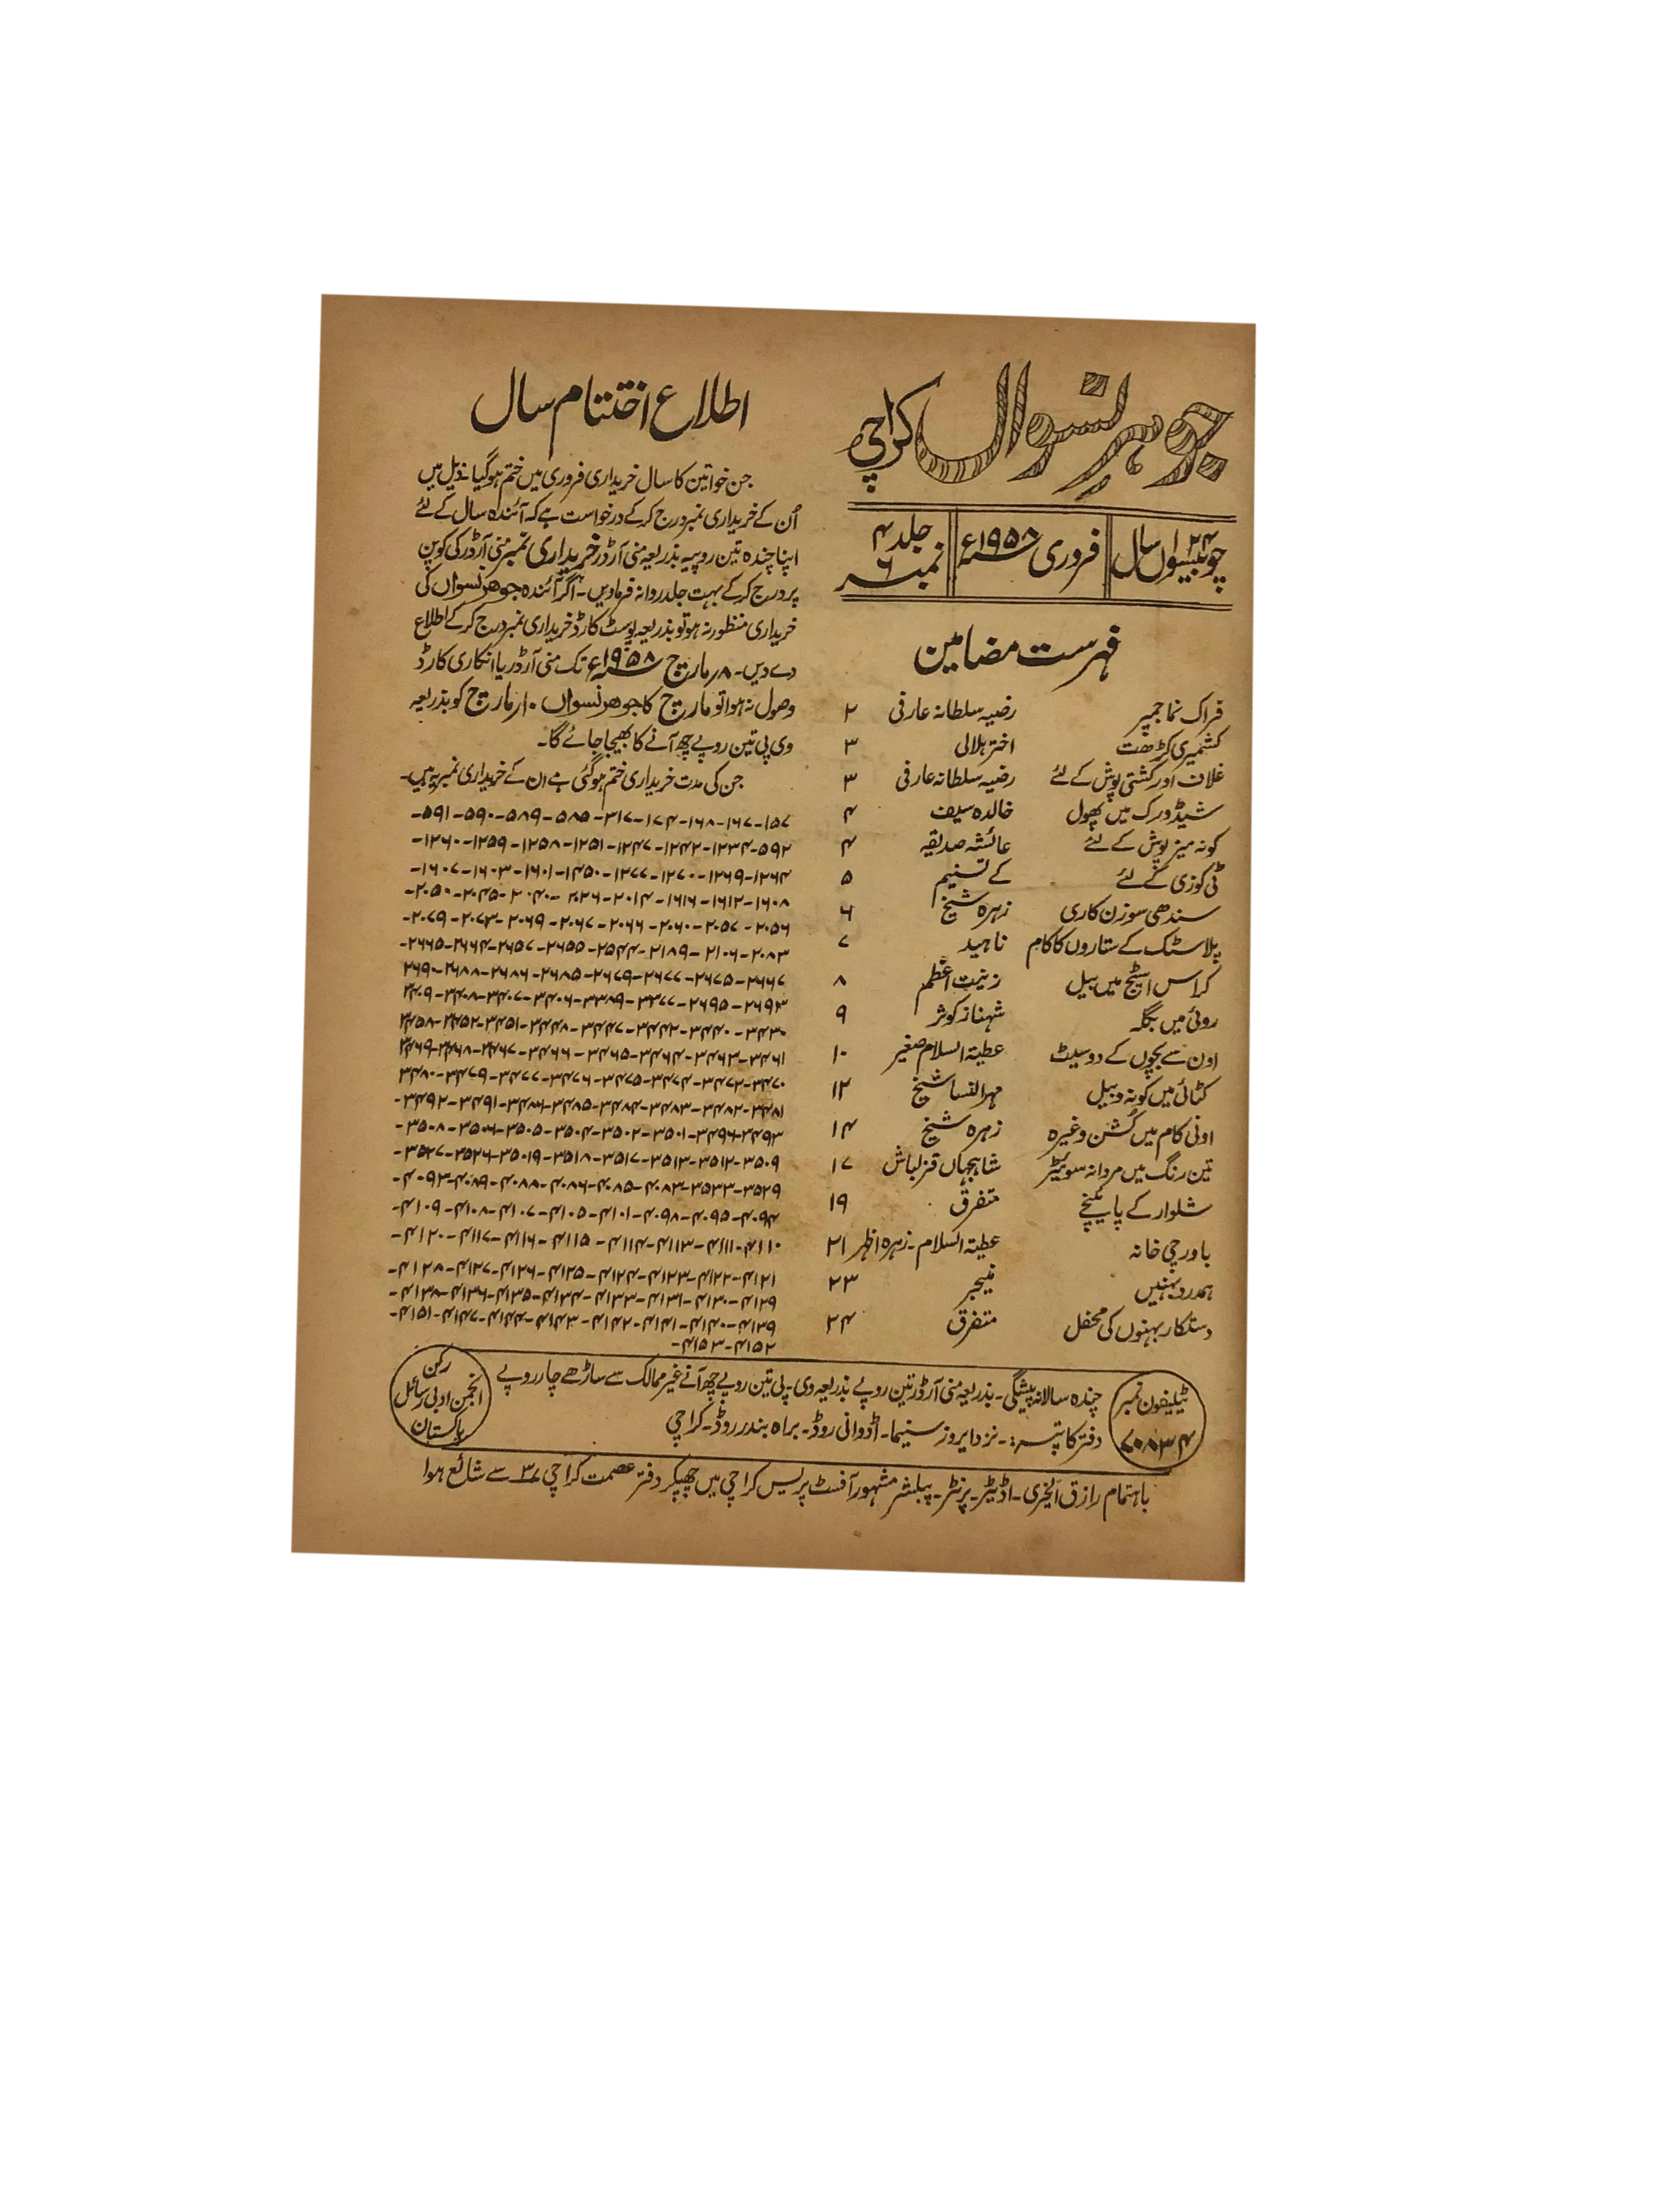 جوہر نسواں کراچی
چوبیسواں ۲۴ سال فروری ۱۹۵۸ء جلد ۴ نمبر ۶
فہرست مضامین
فراک نما جمپر رضیہ سلطانہ عارفی ۲
کشمیری کڑھت اختر ہلالی ۳
غلاف اور کشتی پوش کے لئے رضیہ سلطانہ عارفی ۳
شیڈ ورک میں پھول خالدہ سیف ۴
کونہ میز پوش کے لئے عائشہ صدیقہ ۴
ٹی کوزی کے لئے کے تسنیم ۵
سندھی سوزن کاری زہرہ شیخ ۶
پلاسٹک کے ستاروں کا کام ناہید ۷
کراس اسٹیچ میں بیل زینت اعظم ۸
روئی میں بگلہ شہناز کوثر ۹
اون سے بچوں کے دو سیٹ عطیۃ السلام صغیر ۱۰
کٹائی میں کونہ و بیل مہرالنسا شیخ ۱۲
اونی کام میں کشن وغیرہ زہرہ شیخ ۱۴
تین رنگ میں مردانہ سوئیٹر شاہجہاں قزلباش ۱۷
شلوار کے پائینچے متفرق ۱۹
باورچی خانہ عطیۃ السلام۔ زہرہ اظہر ۲۱
ہمدرد بہنیں منیجر ۲۳
دستکار بہنوں کی محفل متفرق ۲۴
اطلاع اختتام سال
جن خواتین کا سال خریداری فروری میں ختم ہوگیا۔ ذیل میں
اُن کے خریداری نمبر درج کرکے درخواست ہے کہ آئندہ سال کے لئے
اپنا چندہ تین روپیہ بذریعہ منی آرڈر خریداری نمبر منی آرڈر کی کوپن
پر درج کرکے بہت جلد روانہ فرماویں۔ اگر آئندہ جوھر نسواں کی
خریداری منظور نہ ہو تو بذریعہ پوسٹ کارڈ خریداری نمبر درج کرکے اطلاع
دے دیں۔ ۸ مارچ ۱۹۵۸ء تک منی آرڈر یا انکاری کارڈ
وصول نہ ہوا تو مارچ کا جوھر نسواں ۱۰ مارچ کو بذریعہ
وی پی تین روپے چھ آنے کا بھیجا جائے گا۔
جن کی مدت خریداری ختم ہوگئی ہے ان کے خریداری نمبر یہ ہیں۔
۱۵۷-۱۶۷-۱۶۸-۱۷۴-۳۱۷-۵۸۵-۵۸۹-۵۹۰-۵۹۱-
۵۹۲-۱۲۳۴-۱۲۴۲-۱۲۴۷-۱۲۵۱-۱۲۵۸-۱۲۵۹-۱۲۶۰-
۱۲۶۴-۱۲۶۹-۱۲۷۰-۱۲۷۷-۱۴۵۰-۱۶۰۱-۱۶۰۳-۱۶۰۷-
۱۶۰۸-۱۶۱۲-۱۶۱۶-۲۰۱۴-۲۰۲۶-۲۰۴۰-۲۰۴۵-۲۰۵۰-
۲۰۵۶-۲۰۵۷-۲۰۶۰-۲۰۶۶-۲۰۶۷-۲۰۶۹-۲۰۷۳-۲۰۷۹-
۲۰۸۳-۲۱۰۶-۲۱۸۹-۲۵۴۴-۲۶۵۵-۲۶۵۷-۲۶۶۴-۲۶۶۵-
۲۶۶۷-۲۶۷۵-۲۶۷۷-۲۶۷۹-۲۶۸۵-۲۶۸۶-۲۶۸۸-۲۶۹۰
۲۶۹۳-۲۶۹۵-۳۳۷۷-۳۳۸۹-۳۴۰۶-۳۴۰۷-۳۴۰۸-۳۴۰۹
۳۴۳۰-۳۴۴۰-۳۴۴۲-۳۴۴۷-۳۴۴۸-۳۴۵۱-۳۴۵۲-۳۴۵۸
۳۴۶۱-۳۴۶۳-۳۴۶۴-۳۴۶۵-۳۴۶۶-۳۴۶۷-۳۴۶۸-۳۴۶۹
۳۴۷۰-۳۴۷۲-۳۴۷۴-۳۴۷۵-۳۴۷۶-۳۴۷۷-۳۴۷۹-۳۴۸۰
۳۴۸۱-۳۴۸۲-۳۴۸۳-۳۴۸۴-۳۴۸۵-۳۴۸۶-۳۴۹۱-۳۴۹۲-
۳۴۹۳-۳۴۹۶-۳۵۰۱-۳۵۰۲-۳۵۰۴-۳۵۰۵-۳۵۰۶-۳۵۰۸-
۳۵۰۹-۳۵۱۲-۳۵۱۳-۳۵۱۷-۳۵۱۸-۳۵۰۱۹-۳۵۲۶-۳۵۲۷-
۳۵۲۹-۳۵۳۳-۴۰۸۳-۴۰۸۵-۴۰۸۶-۴۰۸۷-۴۰۸۹-۴۰۹۳-
۴۰۹۴-۴۰۹۵-۴۰۹۸-۴۱۰۱-۴۱۰۵-۴۱۰۷-۴۱۰۸-۴۱۰۹-
۴۱۱۰-۴۱۱۱-۴۱۱۳-۴۱۱۴-۴۱۱۵-۴۱۱۶-۴۱۱۷-۴۱۲۰-
۴۱۲۱-۴۱۲۲-۴۱۲۳-۴۱۲۴-۴۱۲۵-۴۱۲۶-۴۱۲۷-۴۱۲۸-
۴۱۲۹-۴۱۳۰-۴۱۳۱-۴۱۳۳-۴۱۳۴-۴۱۳۵-۴۱۳۶-۴۱۳۸-
۴۱۳۹-۴۱۴۰-۴۱۴۱-۴۱۴۲-۴۱۴۳-۴۱۴۴-۴۱۴۷-۴۱۵۱-
۴۱۵۲-۴۱۵۳-
ٹیلیفون نمبر
۷۰۸۳۴
چندہ سالانہ پیشگی۔ بذریعہ منی آرڈر تین روپے بذریعہ وی۔پی تین روپے چھ آنے غیر ممالک سے ساڑھے چار روپے
دفتر کا پتہ:۔ نزد ایروز سنیما۔ اڈوانی روڈ۔ براہ بندر روڈ۔ کراچی
رکن
انجمن ادبی رسائل
پاکستان
باہتمام رازق الخیری۔ اڈیٹر۔ پرنٹر۔ پبلشر مشہور آفسٹ پریس کراچی میں چھپکر دفتر عصمت کراچی ۳ سے شائع ہوا